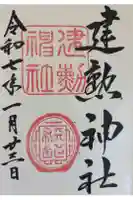 建勲神社
建勲
神社
令和七年一月廿三日